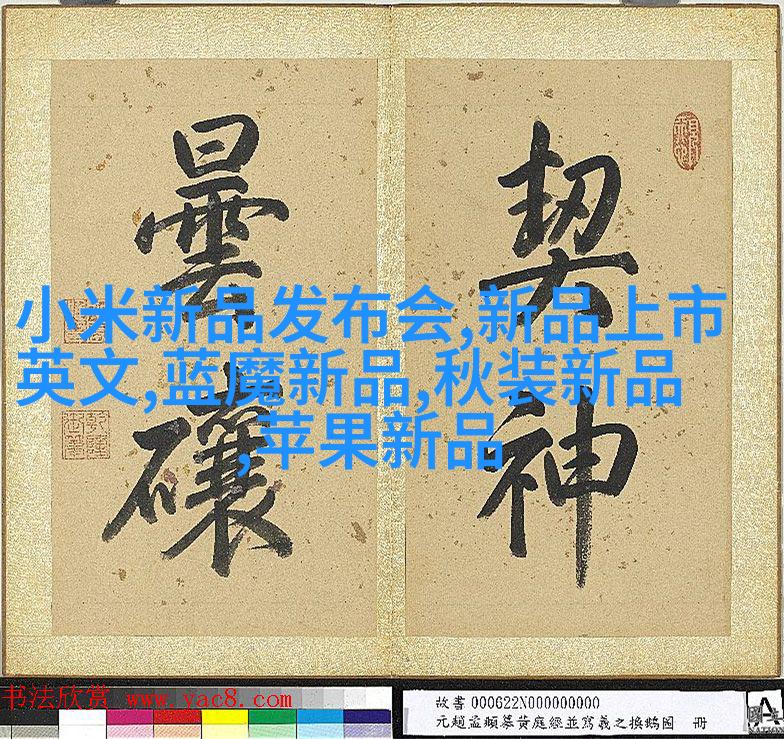 契神
曇礳
小米新品发布会,新品上市
英文,蓝魔新品,秋装新品
,苹果新品
书法欣赏 www.yac8.com
故書000622N000000000
元趙孟頫摹黄庭經並寫羲之換鵝圖 冊